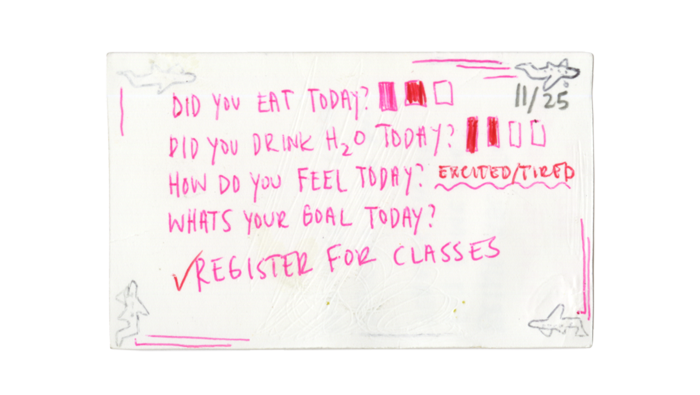 DID YOU EAT TODAY?
11/25
DID YOU DRINK H₂O TODAY?
HOW DO YOU FEEL TODAY? EXCITED/TIRED
WHATS YOUR GOAL TODAY?
✓REGISTER FOR CLASSES